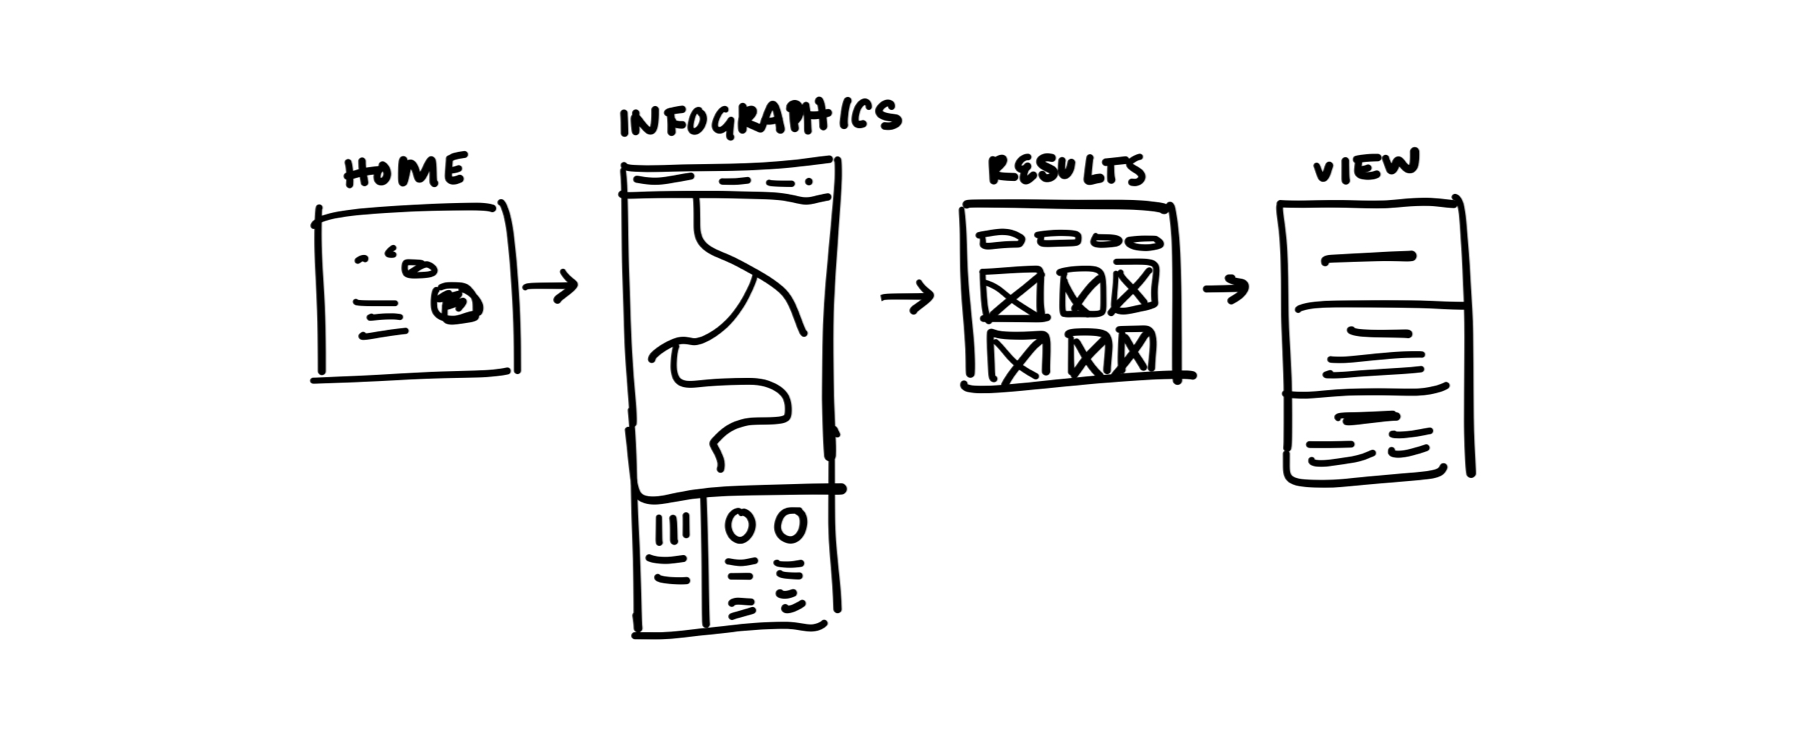 HOME
INFOGRAPHICS
RESULTS
VIEW